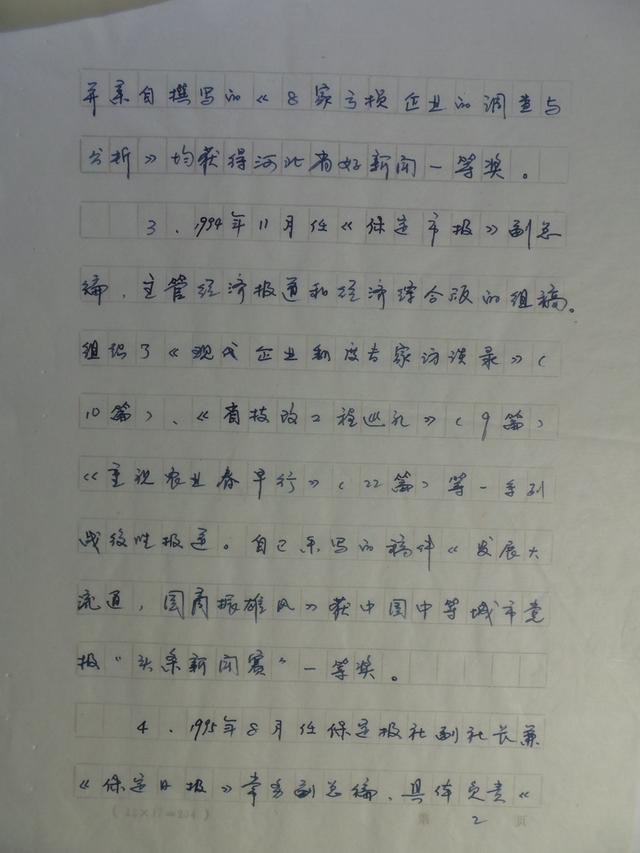 并亲自撰写的《8家亏损企业的调查与
分析》均获得河北省好新闻一等奖。
3、1994年11月任《保定市报》副总
编，主管经济报道和经济综合版的组稿。
组织了《现代企业制度专家访谈录》（
10篇）、《省技改工程巡礼》（9篇）
《重视农业春早行》（22篇）等一系列
战役性报道。自己采写的稿件《发展大
流通，国商振雄风》获中国中等城市党
报“头条新闻赛”一等奖。
4、1995年8月任保定报社副社长兼
《保定日报》常务副总编，具体负责《
（ 15×17=204 ） 第 2 页